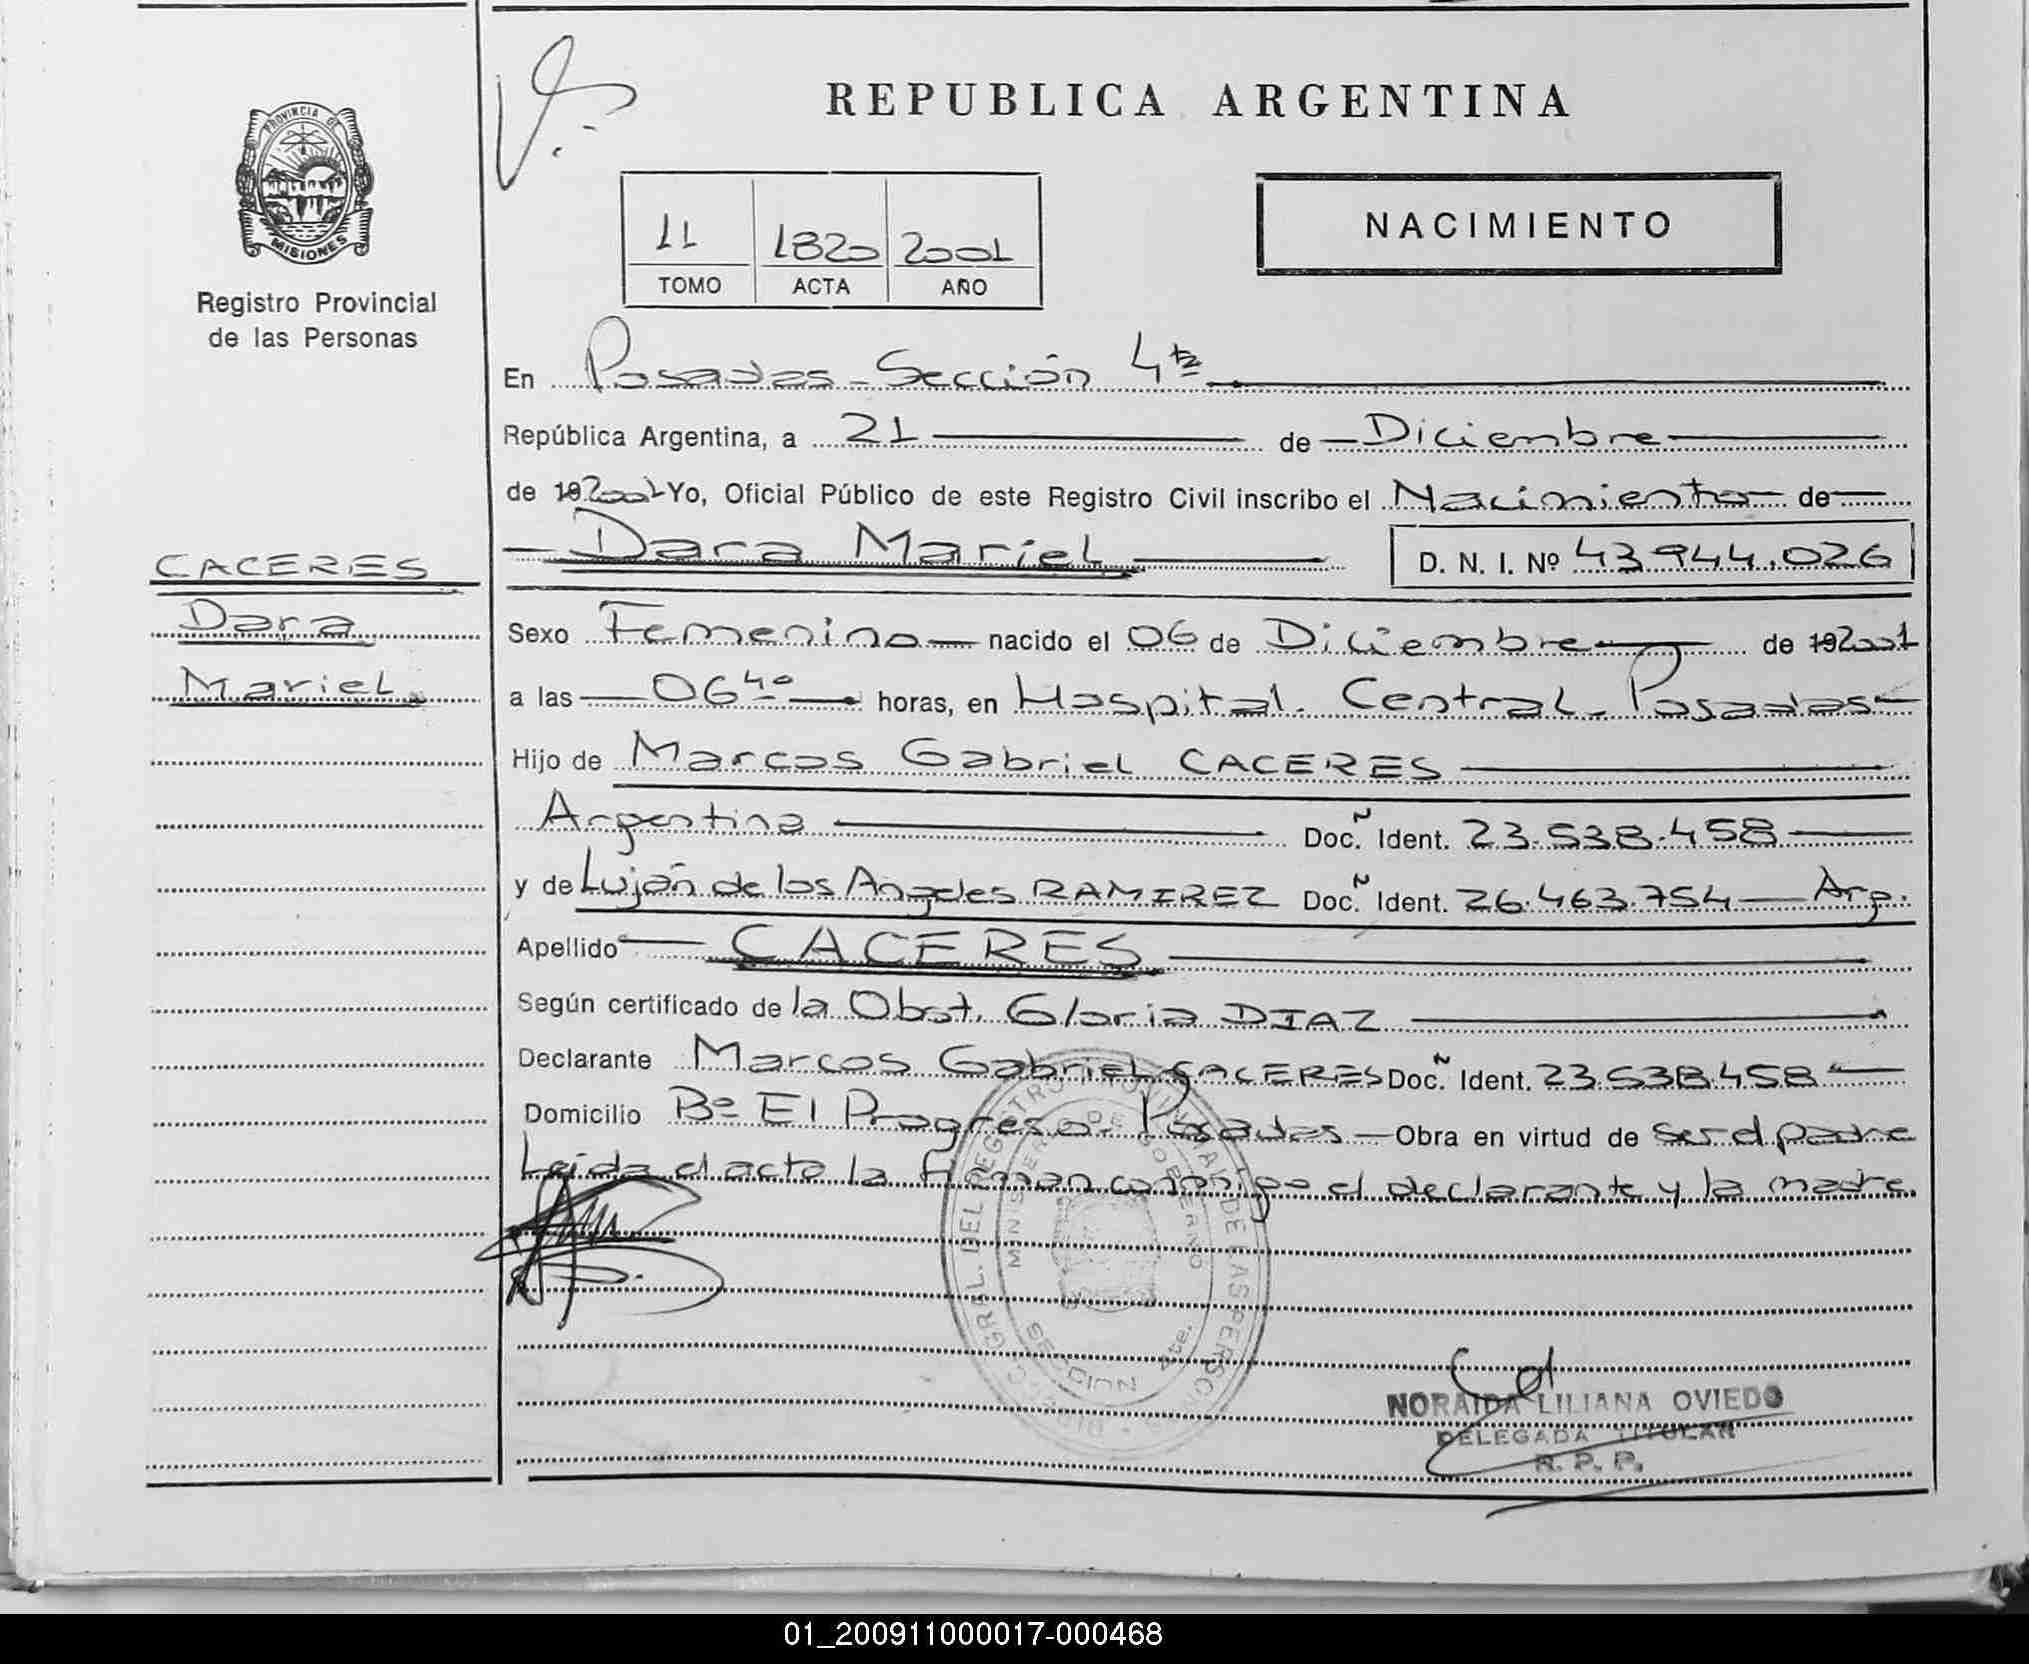 REPUBLICA ARGENTINA
PROVINCIA DE
MISIONES
Registro Provincial
de las Personas
NACIMIENTO
11 1820 2001
TOMO ACTA AÑO
En Posadas - Sección 4ta
República Argentina, a 21 de Diciembre
de 192001 Yo, Oficial Público de este Registro Civil inscribo el Nacimiento de
Dara Mariel D. N. I. Nº 43.944.026
CACERES
Dara
Mariel.
Sexo Femenino nacido el 06 de Diciembre de 192001
a las 06 40 horas, en Hospital. Central - Posadas
Hijo de Marcos Gabriel CACERES
Argentina Doc. Ident. 23.538.458
y de Luján de los Angeles RAMIREZ Doc. Ident. 26.463.754 Arg.
Apellido CACERES
Según certificado de la Obst. Gloria DIAZ
Declarante Marcos Gabriel CACERES Doc. Ident. 23.538.458
Domicilio Bº El Progreso. Posadas Obra en virtud de ser el padre
Leida el acta la firman conmigo el declarante y la madre.
GRAL. DEL REGISTRO PROVINCIAL DE LAS PERSONAS
MINISTERIO DE GOBIERNO
NORAIDA LILIANA OVIEDO
DELEGADA TITULAR
R. P. P.
01_200911000017-000468